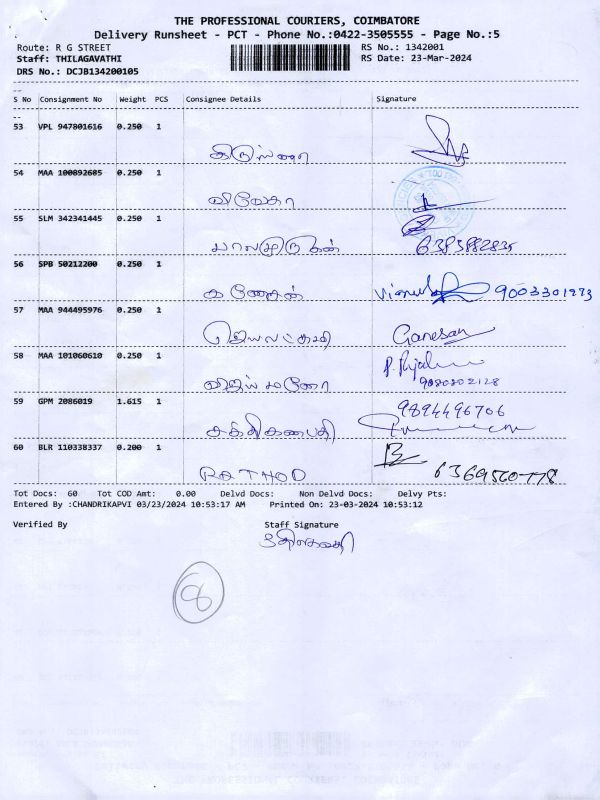 THE PROFESSIONAL COURIERS, COIMBATORE
Delivery Runsheet - PCT - Phone No.:0422-3505555 - Page No.:5
Route: R G STREET RS No.: 1342001
Staff: THILAGAVATHI RS Date: 23-Mar-2024
DRS No.: DCJB134200105
S No Consignment No Weight PCS Consignee Details Signature
53 VPL 947801616 0.250 1
54 MAA 100892685 0.250 1
விவேகா
55 SLM 342341445 0.250 1
பாலமுருகன் 6383882835
56 SPB 50212200 0.250 1
கணேசன் 9003301273
57 MAA 944495976 0.250 1
ஜெயலட்சுமி Ganesan
58 MAA 101060610 0.250 1
விஜய் மனோ
9080802128
59 GPM 2086019 1.615 1
சக்திகணபதி 9894496706
60 BLR 110338337 0.200 1
RATHOD
Tot Docs: 60 Tot COD Amt: 0.00 Delvd Docs: Non Delvd Docs: Delvy Pts:
Entered By :CHANDRIKAPVI 03/23/2024 10:53:17 AM Printed On: 23-03-2024 10:53:12
Verified By Staff Signature
திலகவதி
8